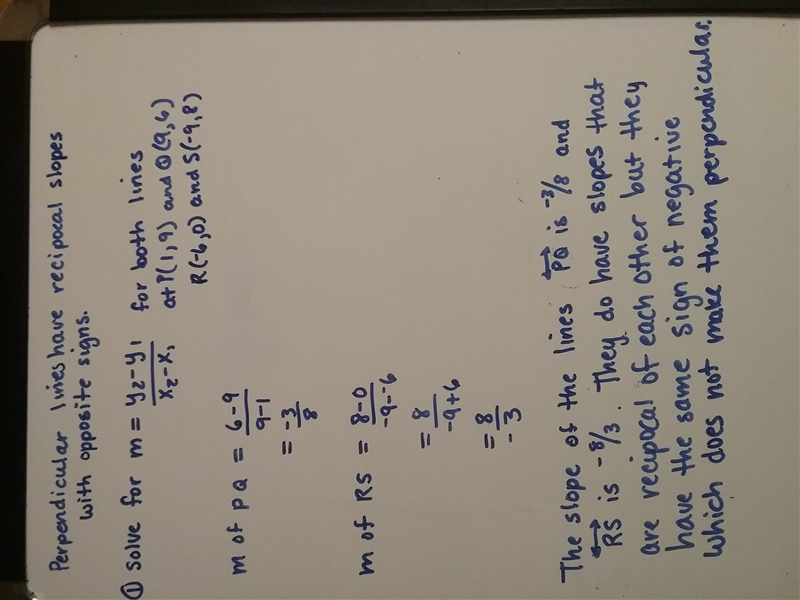 Perpendicular lines have reciprocal slopes
with opposite signs.
① solve for m = y₂-y₁/x₂-x₁ for both lines
at P(1,9) and Q(9,6)
R(-6,0) and S(-9,8)
m of PQ = 6-9/9-1
= -3/8
m of RS = 8-0/-9--6
= 8/-9+6
= 8/-3
The slope of the lines PQ is -3/8 and
RS is -8/3. They do have slopes that
are reciprocal of each other but they
have the same sign of negative
which does not make them perpendicular.